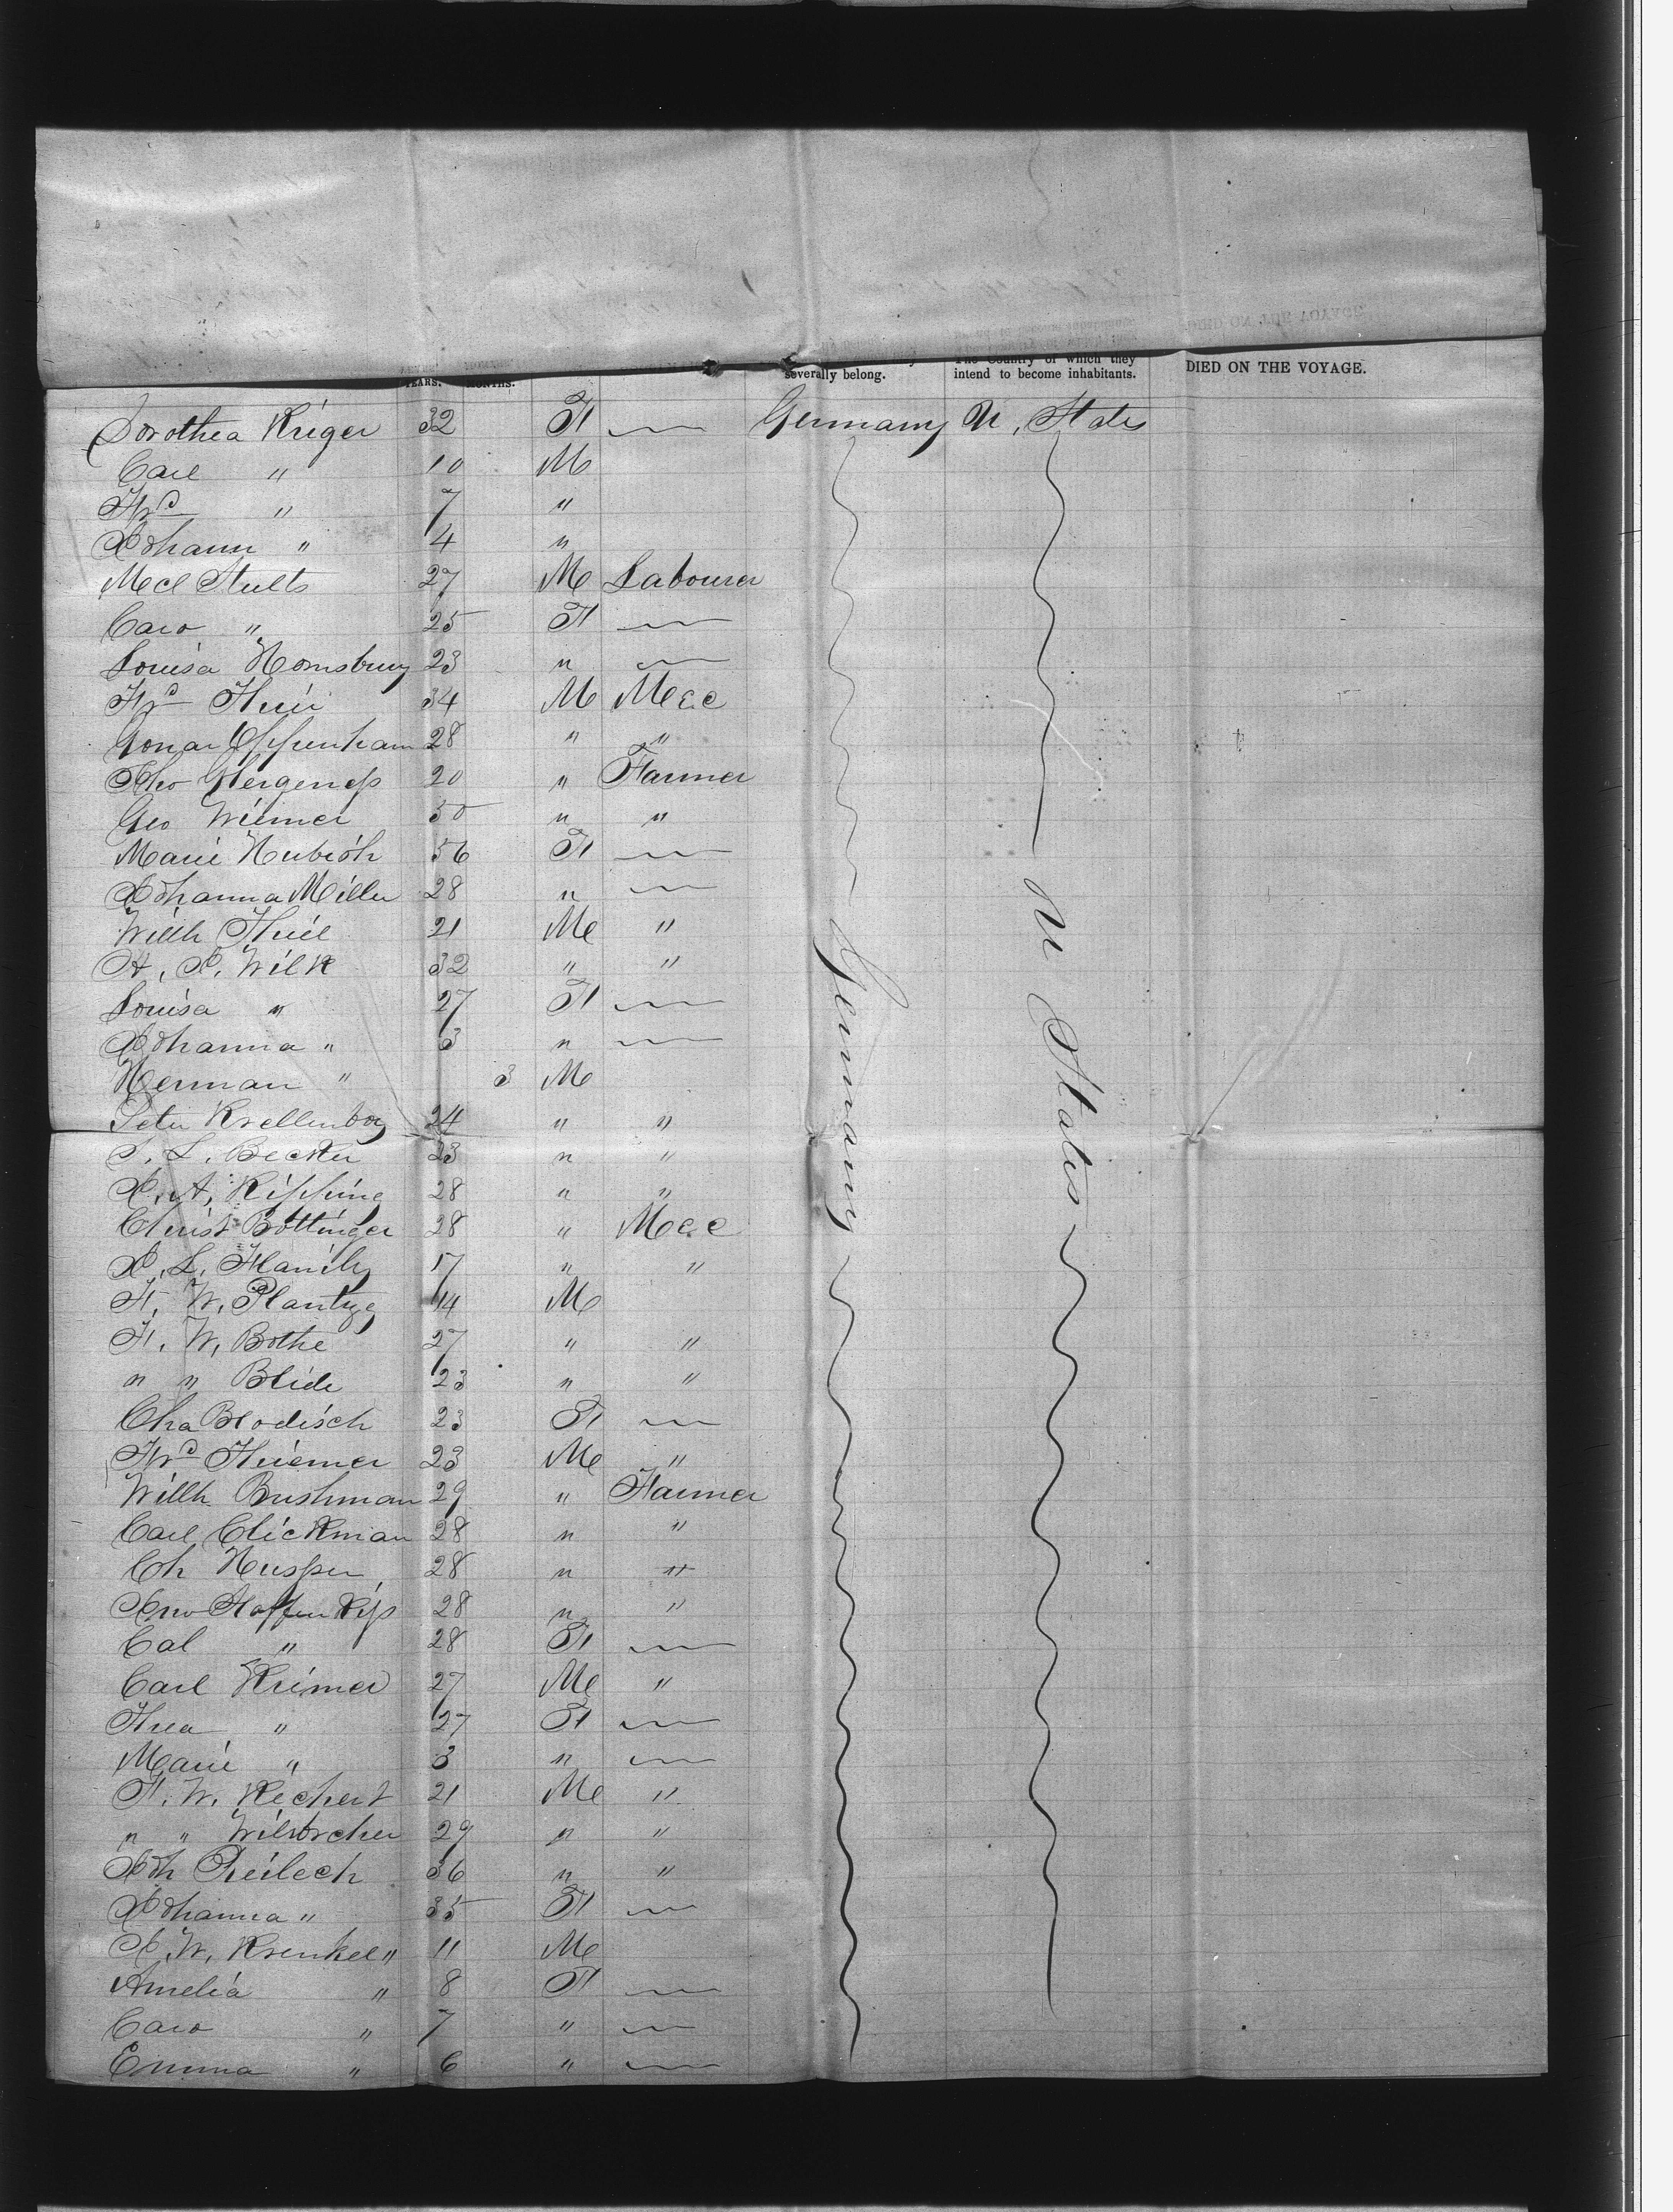 YEARS. MONTHS. severally belong. The Country of which they intend to become inhabitants. DIED ON THE VOYAGE.
Dorothea Kriger 32 F — Germany U, States
Carl " 10 M
Frd " 7 "
Johann " 4 "
Stults 27 M Labourer
Caro " 25 F —
Louisa Homsburg 23 " —
Frd 34 M Mec
Oppenham 28 " "
20 " Farmer
Geo Wiemer 50 " "
Marie 56 F —
Johanna Miller 28 " —
Willh Thiel 21 M "
A, J, Wilk 32 " "
Louisa " 27 F —
Johanna " 3 " —
Herman " 3 M
Peter Krellenborg 24 " "
L, Becker 23 " "
J, A, Kipping 28 " "
Christ Bottinger 28 " Mec
J, L, 17 " "
F, W, Plantze 14 M
F, W, Bothe 27 " "
" " Blide 23 " "
Cha Blodisch 23 F —
Frd 23 M "
Willh Bushman 29 " Farmer
Carl Clickman 28 " "
Ch 28 " "
28 " "
Cal " 28 F —
Carl Krimer 27 M "
" 27 F —
Marie " 3 " —
F, W, Rechert 21 M "
" " 29 " "
Joh Reilech 36 " "
Johanna " 35 F —
J, W, Krenkel " 11 M
Amelia " 8 F —
Caro " 7 " —
Emma " 6 " —
Germany
U States